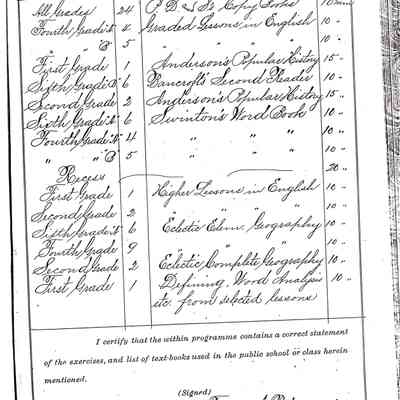 All Grades 24 P. D. & S's Copy Books 10 min
Fourth Grade A 4 Graded Lessons in English 10 "
" " B 5 " " " 10 "
First Grade 1 Anderson's Popular History 15 "
Sixth Grade B 6 Bancroft's Second Reader 10 "
Second Grade 2 Anderson's Popular History 15 "
Sixth Grade A 6 Swinton's Word Book 10 "
Fourth Grade A 4 " " " 10 "
" " B 5 " " " 10 "
Recess 20 "
First Grade 1 Higher Lessons in English 10 "
Second Grade 2 " " " 10 "
Sixth Grade A 6 Eclectic Elem. Geography 10 "
Fourth Grade 9 " " " 10 "
Second Grade 2 Eclectic Complete Geography 10 "
First Grade 1 Defining, Word Analysis 10 "
etc. from selected lessons
I certify that the within programme contains a correct statement
of the exercises, and list of text-books used in the public school or class herein
mentioned.
(Signed)